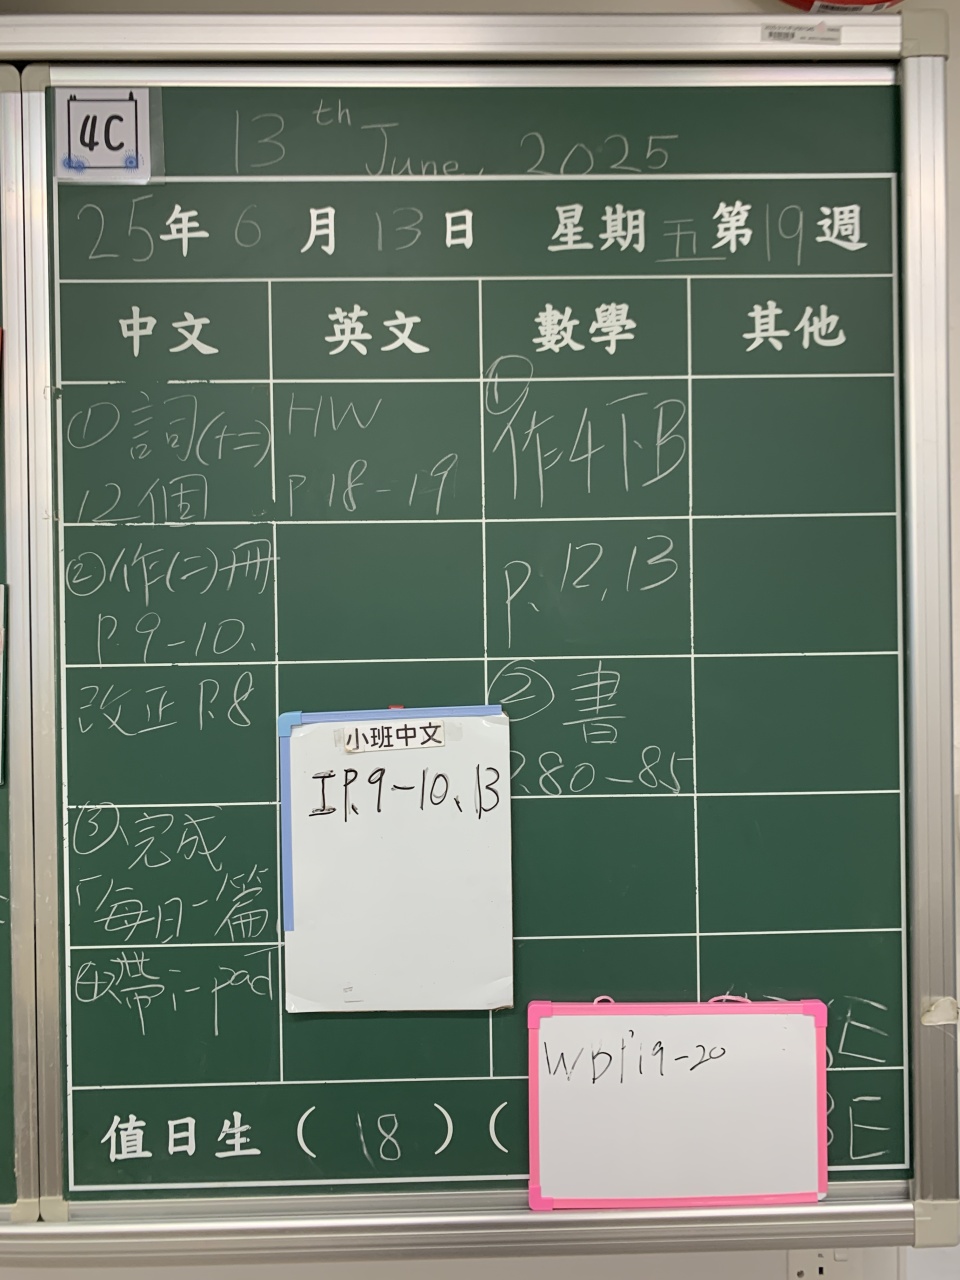 4C
13th June, 2025
25年6月13日 星期五第19週
中文 英文 數學 其他
①詞(十二)
12個
②作(二)冊
P.9-10、
改正 P.8
③、完成
「每日一篇
④帶i-pad
HW
P.18-19
①
作4下B
P. 12, 13
② 書
P.80-85
小班中文
IP.9-10、13
WB P19-20
E
BE
值日生 ( 18 ) (